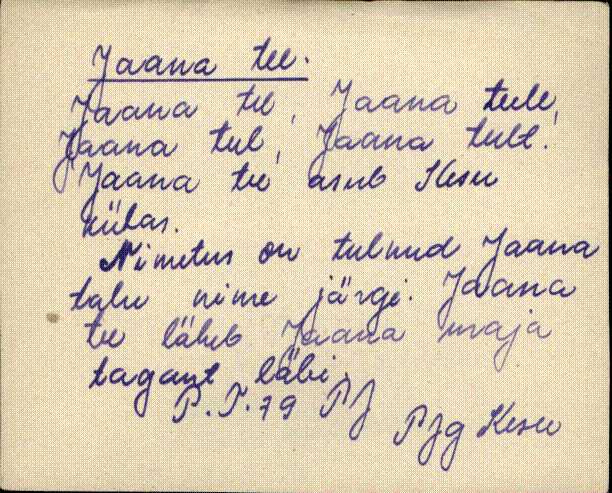 Jaana tee.
Jaana tee, Jaana teele,
Jaana teel, Jaana teelt.
Jaana tee asub Kesu
külas.
Nimetus on tulnud Jaana
talu nime järgi. Jaana
tee läheb Jaana maja
tagant läbi.
P. T. 79 PJ
PJg Kesu